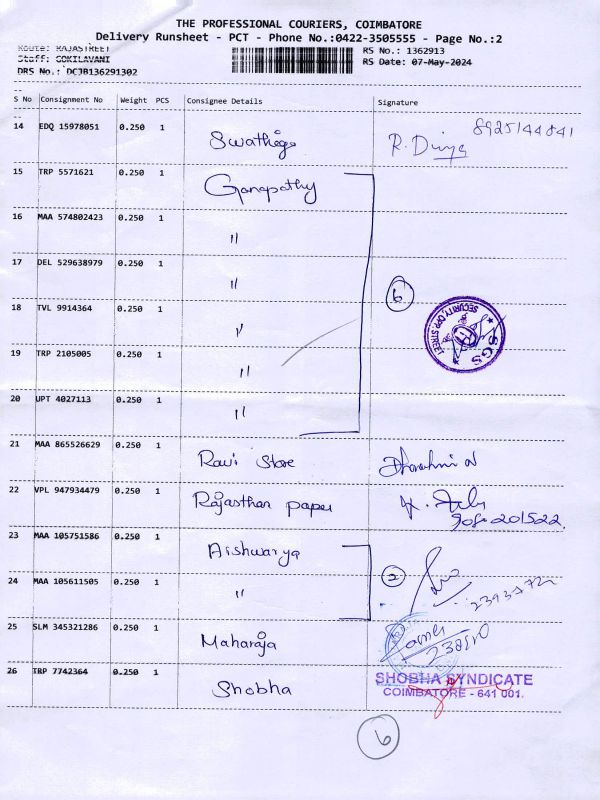 THE PROFESSIONAL COURIERS, COIMBATORE
Delivery Runsheet - PCT - Phone No.:0422-3505555 - Page No.:2
Route: RAJASTREET
RS No.: 1362913
Staff: GOKILAVANI
RS Date: 07-May-2024
DRS No.: DCJB136291302
S No Consignment No Weight PCS Consignee Details Signature
14 EDQ 15978051 0.250 1 Swathiga R. Divya 8925144841
15 TRP 5571621 0.250 1 Ganapathy
16 MAA 574802423 0.250 1 "
17 DEL 529638979 0.250 1 " 6
18 TVL 9914364 0.250 1 "
SGS
19 TRP 2105005 0.250 1 "
20 UPT 4027113 0.250 1 "
21 MAA 865526629 0.250 1 Ravi Store
22 VPL 947934479 0.250 1 Rajasthan paper
23 MAA 105751586 0.250 1 Aishwarya
24 MAA 105611505 0.250 1 " 2
25 SLM 345321286 0.250 1 Maharaja
26 TRP 7742364 0.250 1 Shobha
SHOBHA SYNDICATE
COIMBATORE - 641 001.
6